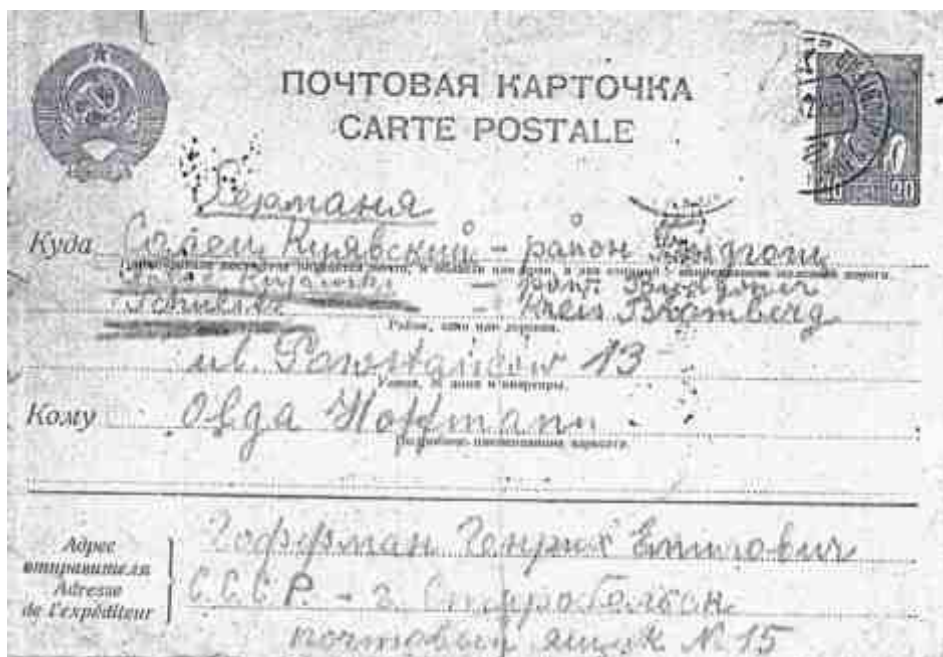 ПОЧТОВАЯ КАРТОЧКА
CARTE POSTALE
Германия
Куда Солец Куявский - район
Kujawski -
Schulitz - Kreis Bromberg
Район, село или деревня.
ul. Powstańców 13
Улица, № дома и квартиры.
Кому Olga Hoffmann
Подробное наименование адресата.
Адрес отправителя
Adresse de l'expéditeur
Гоффман Генрих Емилович
С.С.С.Р. - г. Старобельск
почтовый ящик № 15
20